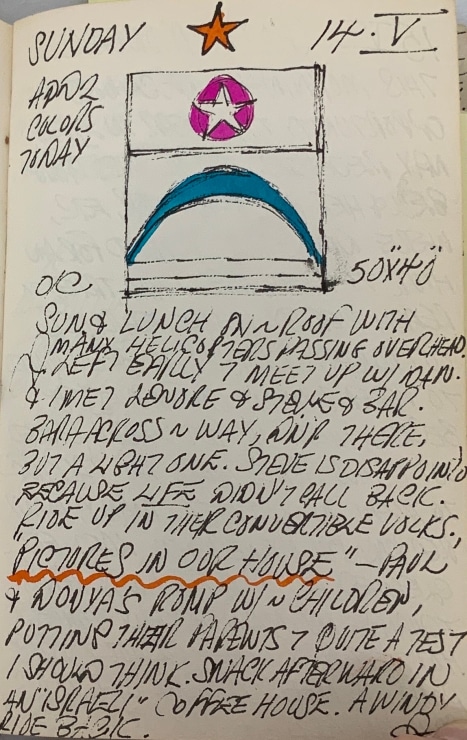 SUNDAY
14·V
ADD 2
COLORS
TODAY
50"X40"
OC
SUN & LUNCH ON ~ ROOF WITH
MANY HELICOPTERS PASSING OVERHEAD.
LEFT EARLY T MEET UP W/ DAN.
& I MET LENORE & STEVE & BAR.
BAR ACROSS ~ WAY, THERE,
BUT A LIGHT ONE. STEVE IS DISAPPOINTD
BECAUSE LIFE DIDN'T CALL BACK.
RIDE UP IN THEIR CONVERTIBLE VOLKS.,
"PICTURES IN OUR HOUSE" — PAUL
& ROMP W/ ~ CHILDREN,
PUTTING THEIR PARENTS T QUITE A TEST
I SHOULD THINK. SNACK AFTERWARD IN
AN "ISRAELI" COFFEE HOUSE. A WINDY
RIDE BACK.